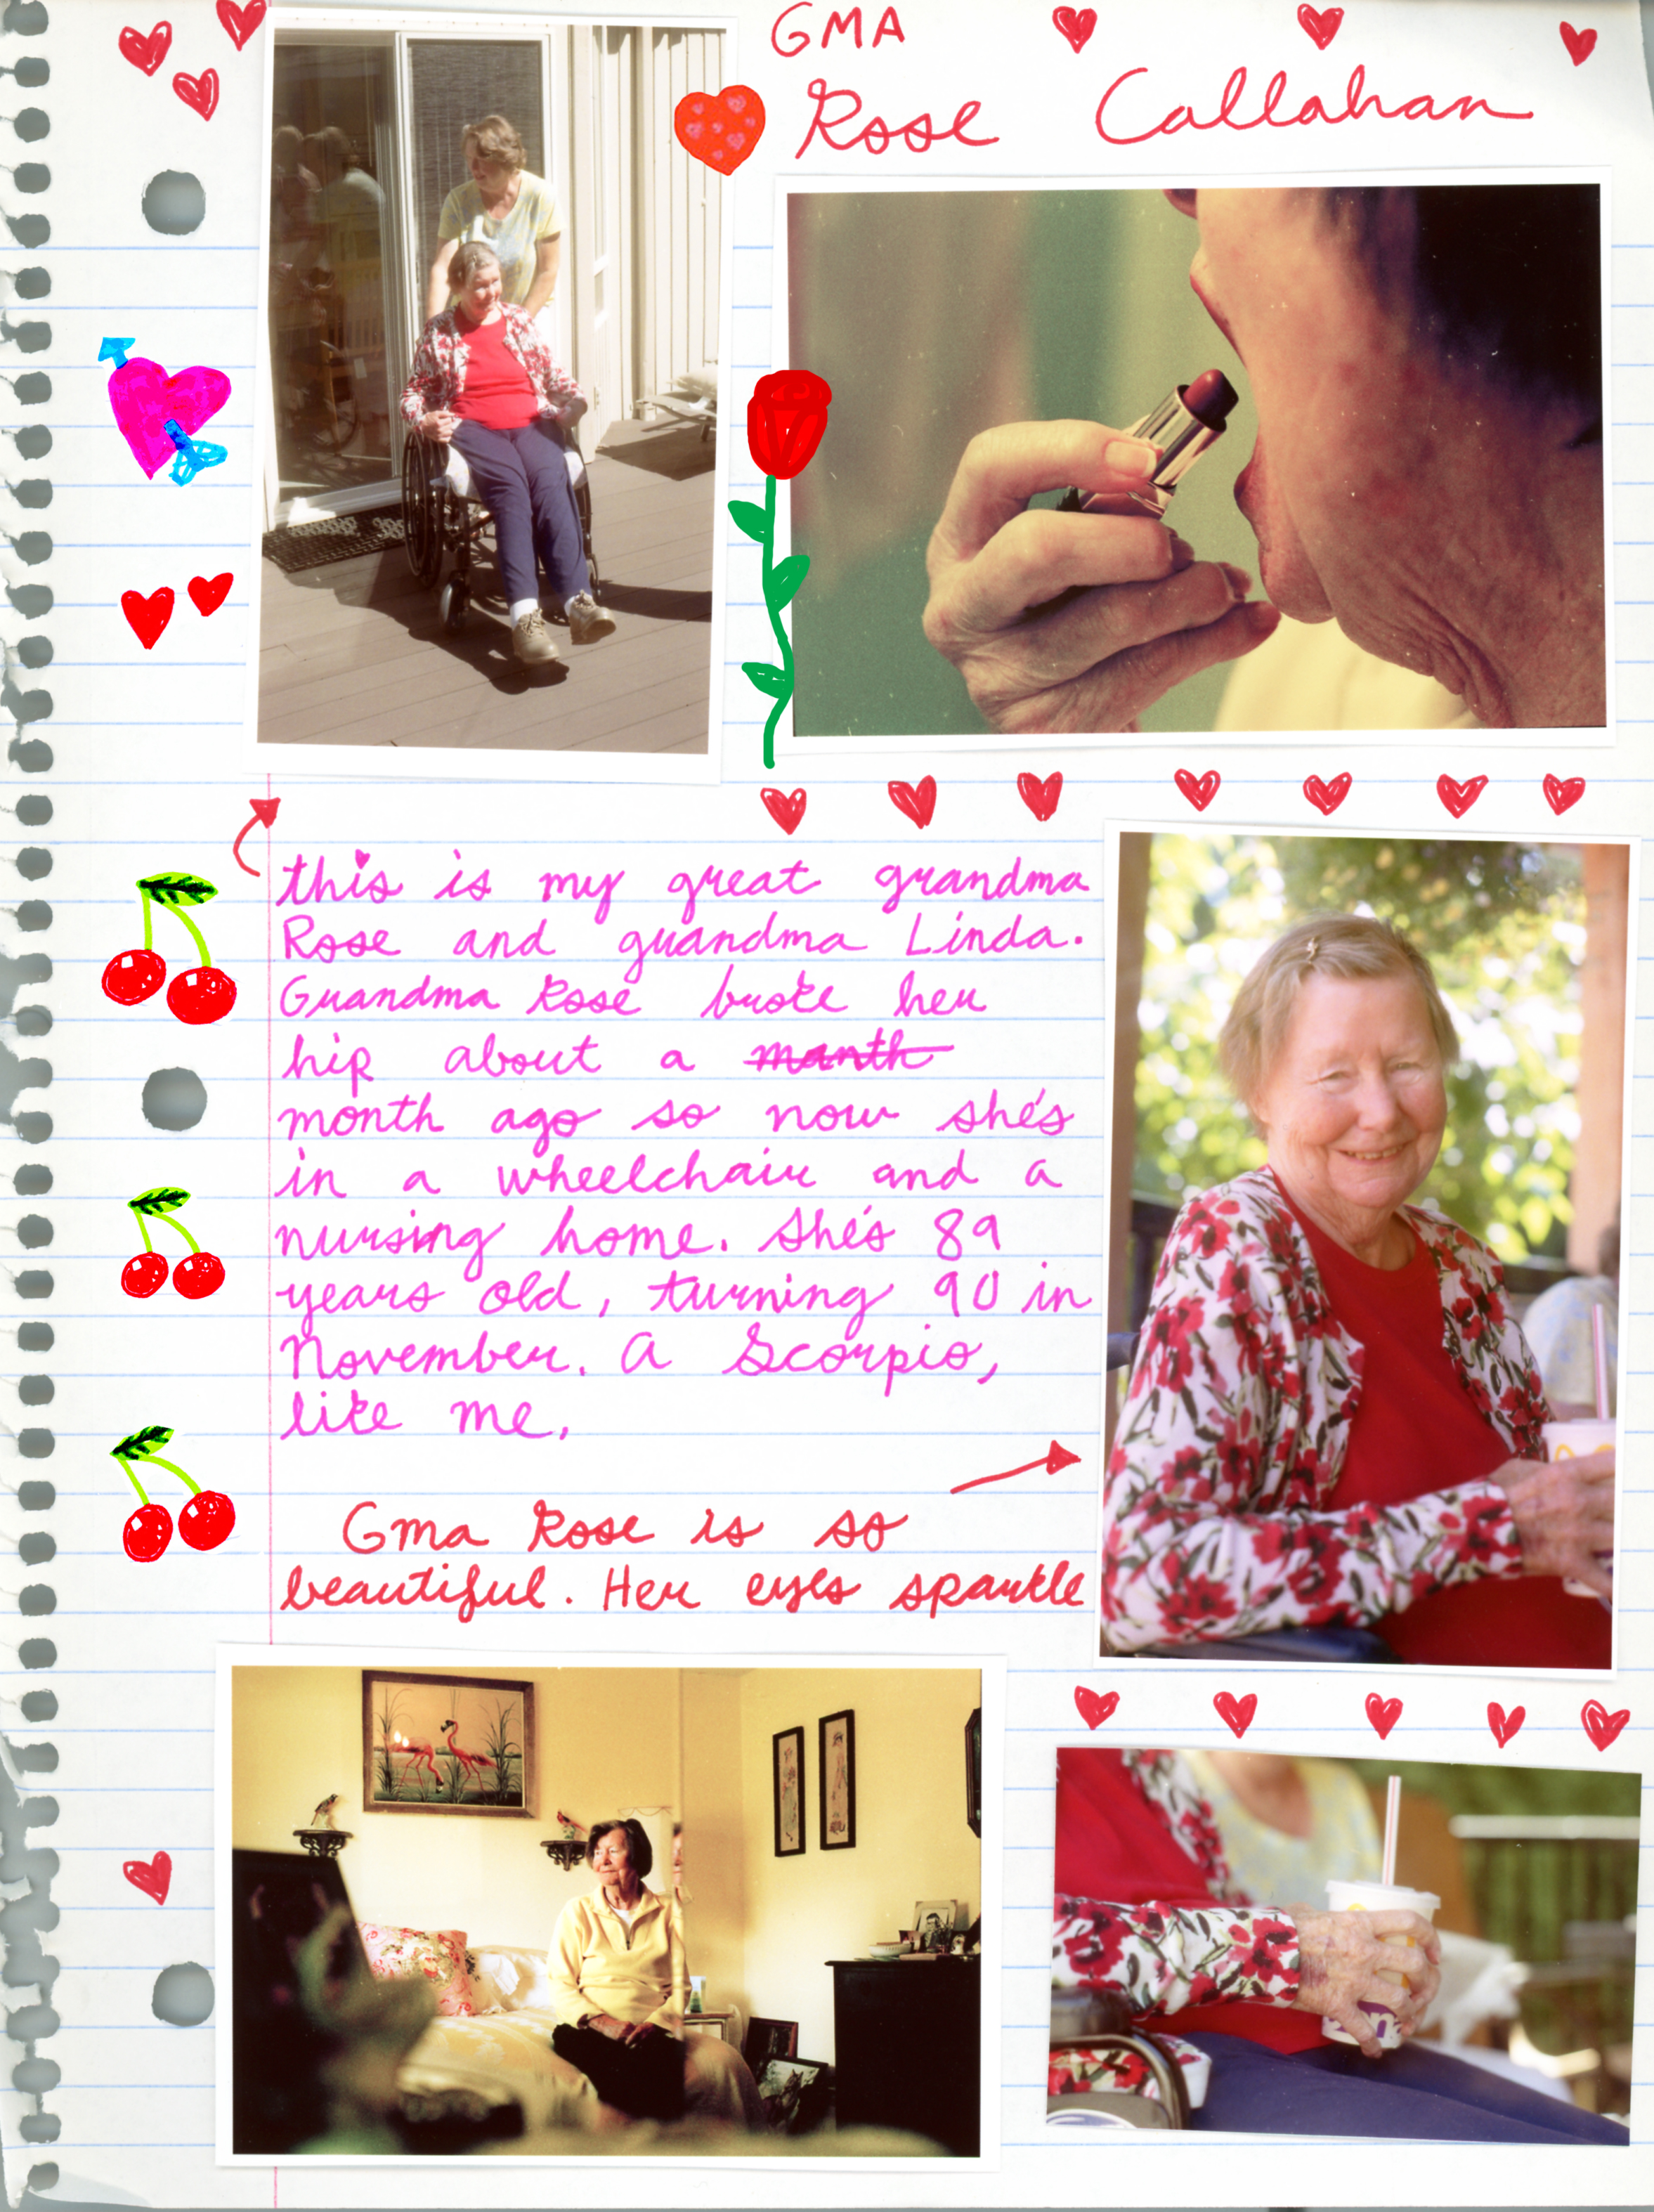 GMA
Rose Callahan
this is my great grandma
Rose and grandma Linda.
Grandma Rose broke her
hip about a manth
month ago so now she's
in a wheelchair and a
nursing home. She's 89
years old, turning 90 in
November. A Scorpio,
like me.
Gma Rose is so
beautiful. Her eyes sparkle